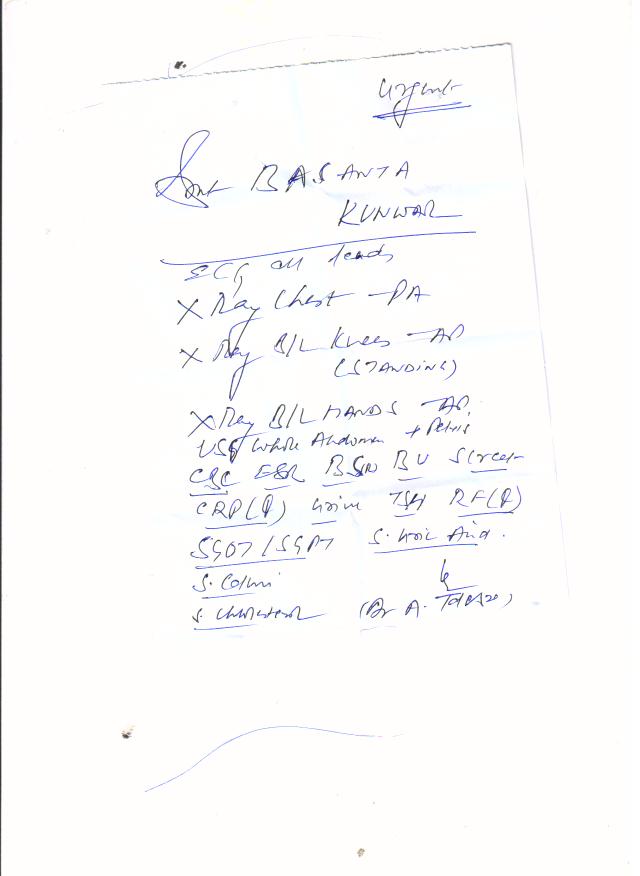 Urgent
Smt BASANTA
KUNWAR
ECG all leads
X Ray Chest - PA
X Ray B/L Knees - AP
(STANDING)
X Ray B/L HANDS - AP.
USG Whole Abdomen + Pelvis
CBC ESR BSR BU S. Creat
CRP(Q) Urine TSH RF(Q)
SGOT/SGPT S. Uric Acid.
S. Calcium
S. Cholesterol (Dr A.